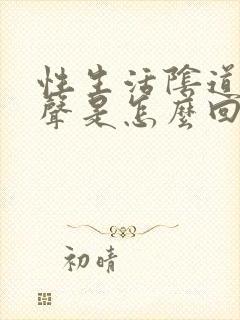 性生活陰道
聲是怎麼回
初晴